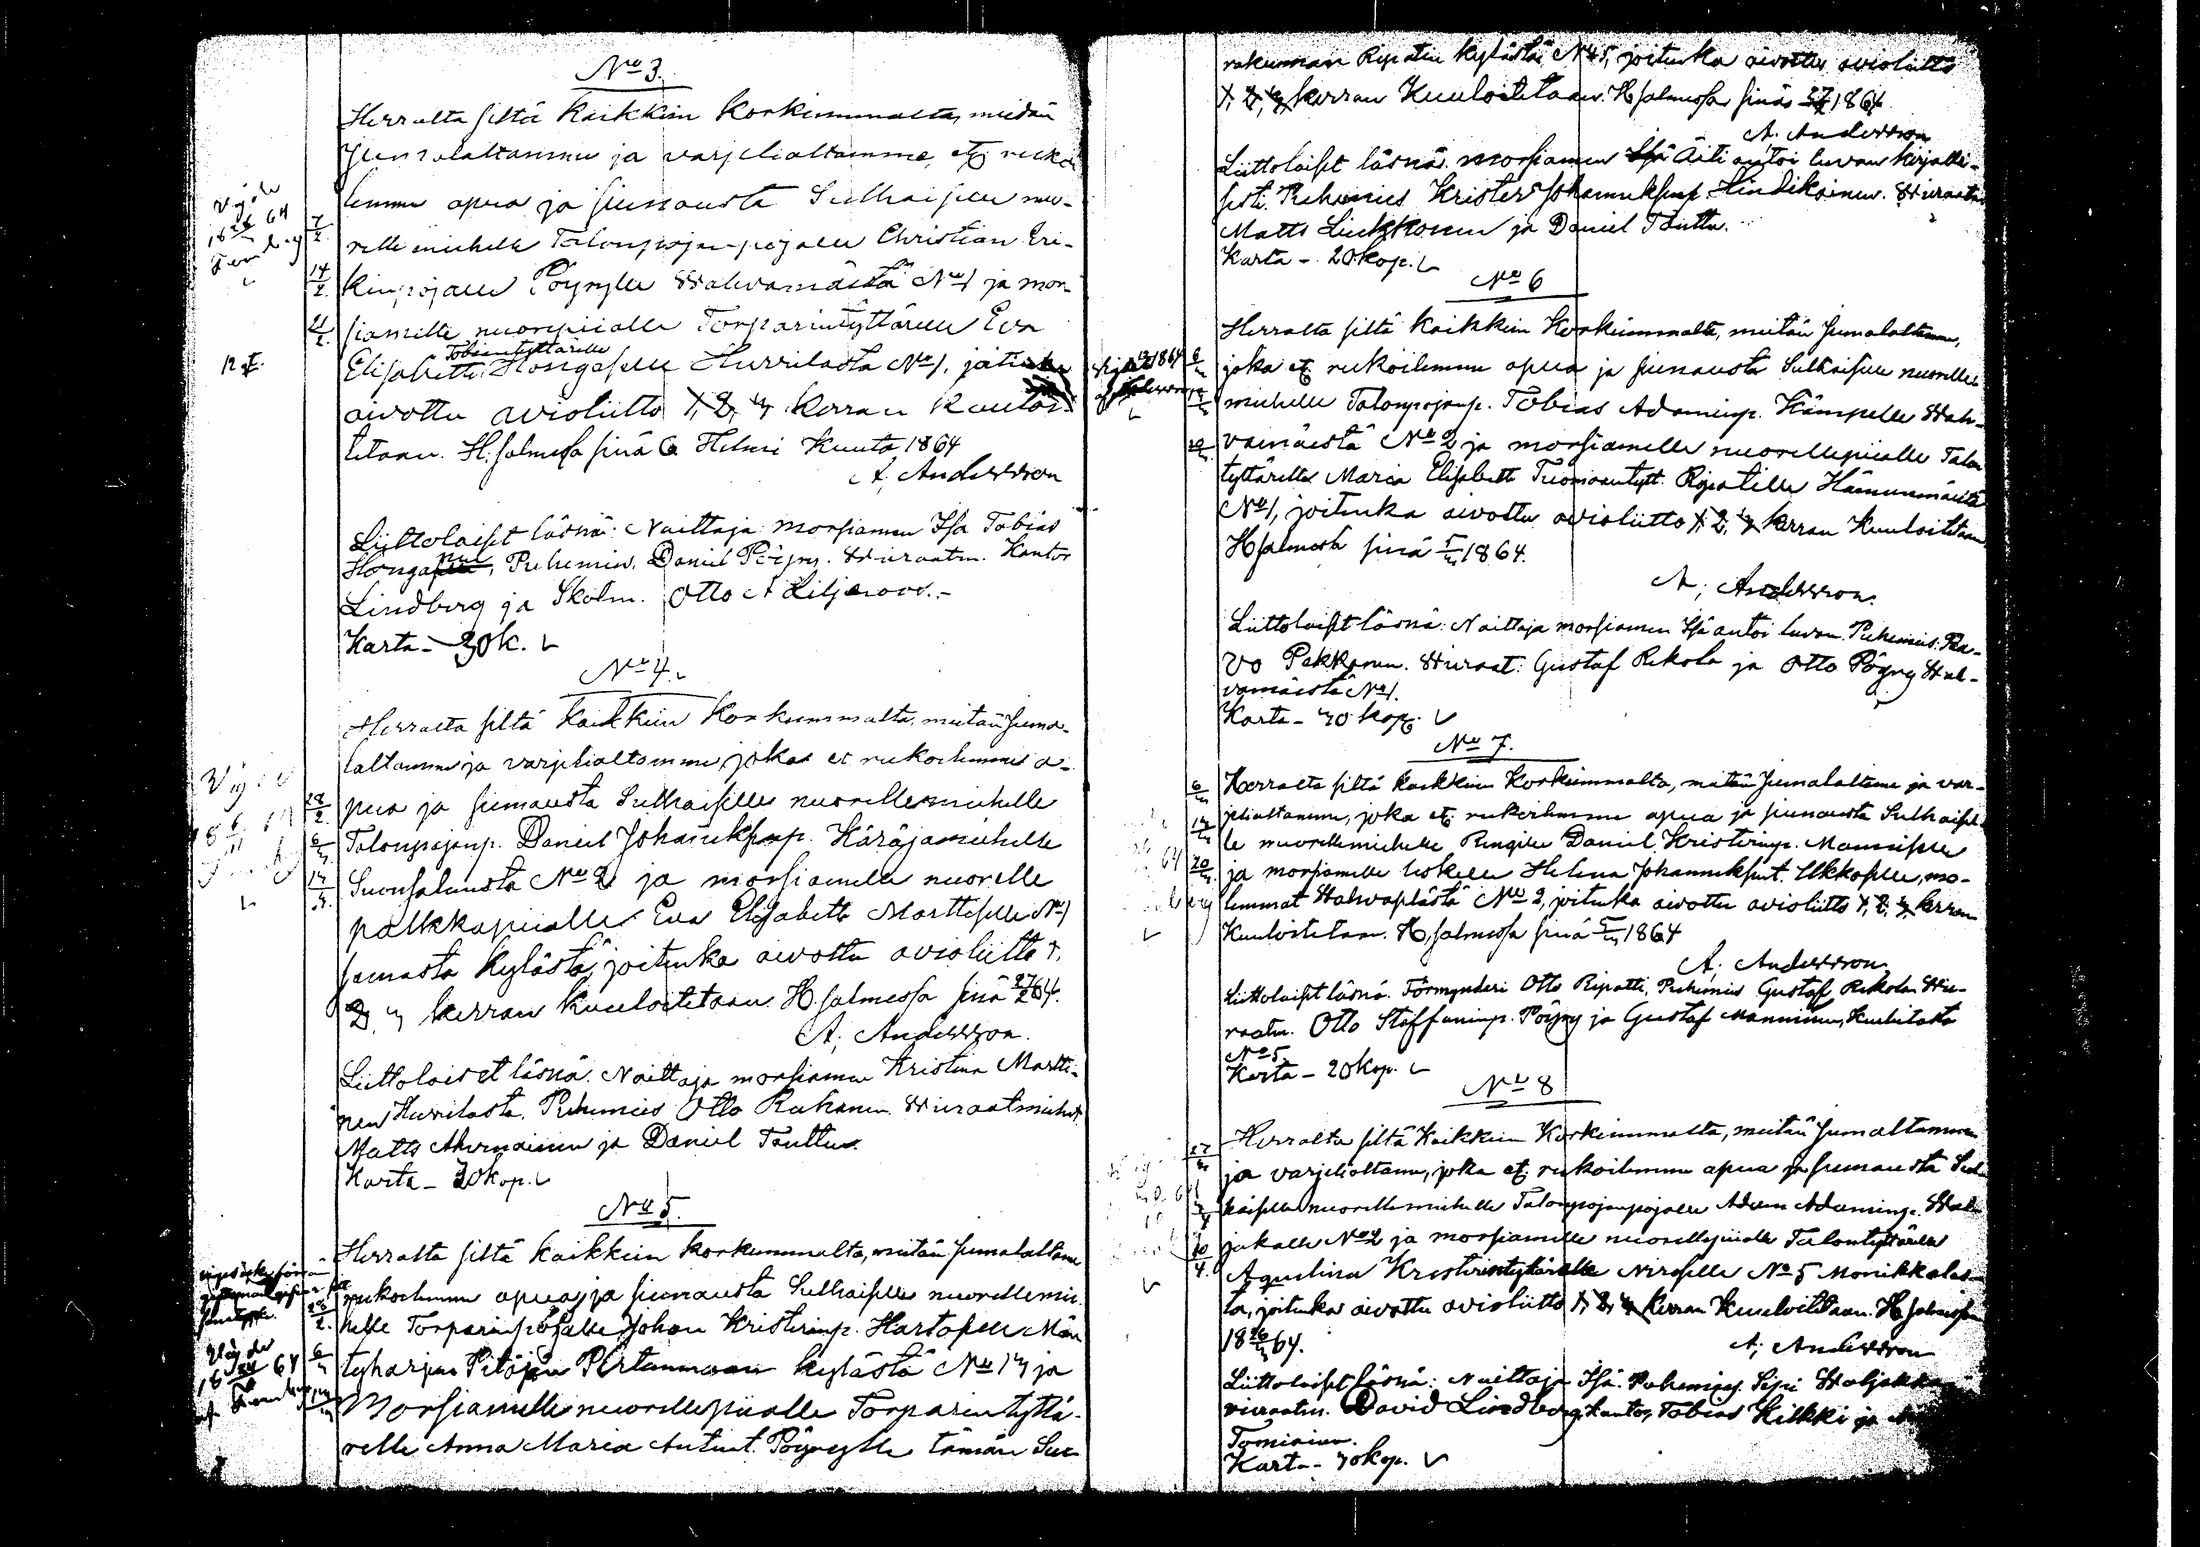 No 3.
Herralta siltä kaikkiin korkimmalta, meidän
Jumalaltamme ja varjelialtamme, etc rukoi
lemme apua ja siunausta Sulhaiselle nuo-
relle miehelle Talonpojanpojalle Christian Eri-
kinpojalle Pöyrylle Wahvamäestä No 1 ja mor-
siamelle nuorpiialle Torparintyttärelle Eva
Tobiantyttärelle
Elisabetta Hongaselle Hurrilasta No 1, joitenka
aivottu avioliitto 1, 2, 3 kerran kuuloi-
tetaan. H:salmessa sinä 6 Helmi Kuuta 1864
A. Andersson
Liittolaiset läsnä: Naittaja morsiamen Isä Tobias
Honga, Puhemies. Daniel Pöyry. Wieraatm. Kantor
Lindberg ja Skolm. Otto A Liljeroos.-
Karta - 30 k.
No 4.
Herralta siltä kaikkiin korkimmalta, meitän Juma-
laltamme ja varjelialtamme, joka et rukoilemme a-
pua ja siunausta Sulhaiselle nuorellemiehelle
Talonpojanp. Daniel Johanuksenp. Käräjämiehelle
Suonsalmesta No 2 ja morsiamelle nuorelle
palkkapiialle Eva Elisabetta Marttiselle No 1
samasta kylästä, joitenka aivottu avioliitto 1,
2, 3 kerran kuuloitetaan. H.salmessa sinä 27/2 64.
A. Andersson.
Liittolaiset läsnä. Naittaja morsiamen Kristina Martti-
nen Hurrilasta. Puhemies Otto Rahanen. Wieraatmiehet
Matts Ahvenainen ja Daniel Tanttu.
Karta - 30 kop.
No 5.
Herralta siltä kaikkiin korkimmalta, meitän Jumalaltame
rukoilemme apua ja siunausta Sulhaiselle nuorellemie-
helle Torparinpojalle Johan Kristerinp. Hartoselle Män
tyharjun Pitäjän Pertunmaan kylästä No 13 ja
Morsiamelle nuorellepiialle Torparintyttä-
relle Anna Maria Antint. Pöyrylle tämän Seu-
rakunnan Ripatin kylästä No 5, joitenka aivottu avioliitto
1, 2, 3 kerran Kuuloitetaan. H.salmessa sinä 27/2 1864.
A. Andersson
Liittolaiset läsnä. morsiamen Äiti antoi luvan kirjalli-
sesti. Puhemies Krister Johanuksenp. Hindikainen. Wieraatm
Matts Liukkonen ja Daniel Tanttu.
Karta - 20 kop.
No 6
Herralta siltä kaikkiin Korkiimmalta, meitän Jumalaltamme,
joka etc. rukoilemme apua ja siunausta Sulhaiselle nuorelle
miehelle Talonpojanp. Tobias Adaminp. Kämpelle Wah-
vamäestä No 2 ja morsiamelle nuorellepiialle Talon
tyttärelle Maria Elisabett Tuomaantytt. Ripatille Hämeenmäestä
No 1, joitenka aivottu avioliitto 1, 2, 3 kerran Kuuloitetaan
H.salmessa sinä 5/3 1864.
A, Andersson.
Liittolaiset läsnä: Naittaja morsiamen Isä antoi luvan. Puhemies. Paa-
vo Pekkanen. Wieraat: Gustaf Rekola ja Otto Pöyry Wah-
vamäestä No 1.
Karta - 30 kop.
No 7.
Herralta siltä kaikkiin korkiimmalta, meitän Jumalaltamme ja var-
jelialtamme, joka etc. rukoilemme apua ja siunausta Sulhaisel
le nuorellemiehelle Rengille Daniel Kristerinp. Manniselle
ja morsiamelle leskelle Helena Johanuksent. Ukkoselle, mo-
lemmat Wahvaselästä No 2, joitenka aivottu avioliitto 1, 2, 3 kerran
Kuuloitetaan. H.salmessa sinä 5/3 1864
A, Andersson
Liittolaiset läsnä. Förmynderi Otto Ripatti, Puhemies Gustaf Rekola Wie-
raatm. Otto Staffaninp. Pöyry ja Gustaf Manninen, Kuulitasta
No 5.
Karta - 20 kop.
No 8
Herralta siltä Kaikkiin Korkiimmalta, meitän Jumaltamme
ja varjelialtamme, joka etc. rukoilemme apua ja siunausta Sul-
haiselle nuorellemiehelle Talonpojanpojalle Adam Adaminp. Wal-
jakalle No 2 ja morsiamelle nuorellepiialle Talontyttärelle
Agustina Kristerintyttärelle Nirosille No 5 Monikkalas-
ta, joitenka aivottu avioliitto 1, 2, 3 kerran Kuuloitetaan. H.salmessa
18 26/3 64.
A, Andersson
Liittolaiset läsnä: Naittaja Isä. Puhemies. Sipi Waljakka
vieraatm. David Lindberg kantor, Tobias Kilkki ja
Tominien.
Karta - 30 kop.